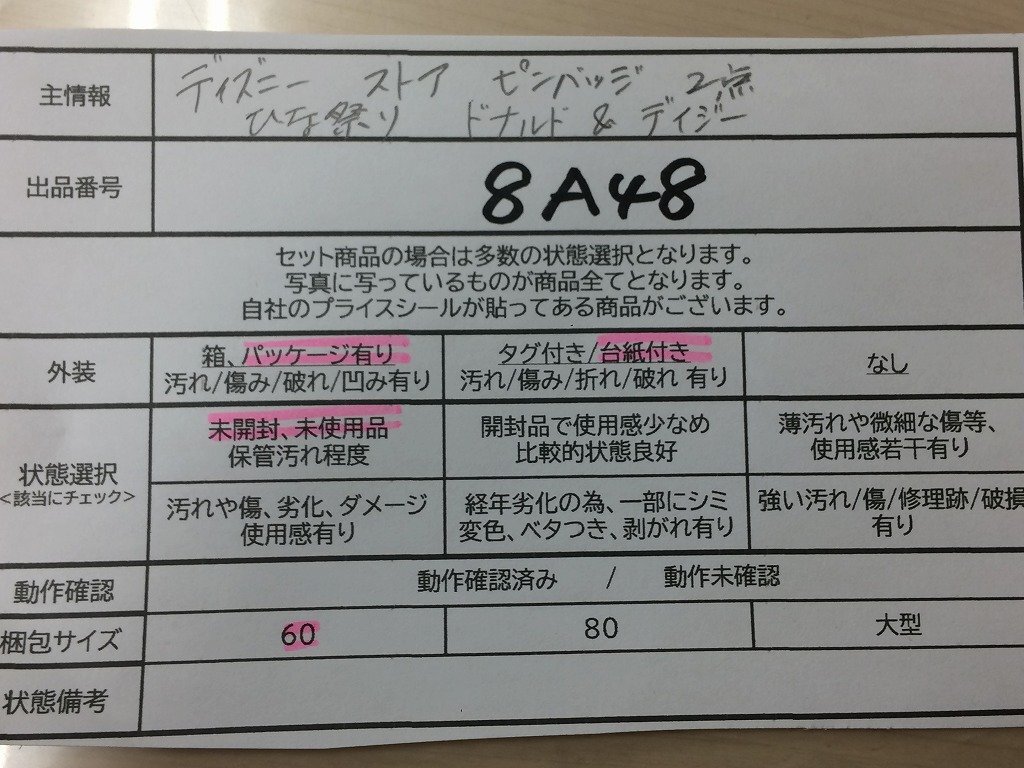 主情報
ディズニー ストア ピンバッジ 2点
ひな祭り ドナルド & デイジー
出品番号
8A48
セット商品の場合は多数の状態選択となります。
写真に写っているものが商品全てとなります。
自社のプライスシールが貼ってある商品がございます。
外装
箱、パッケージ有り
汚れ/傷み/破れ/凹み有り
タグ付き/台紙付き
汚れ/傷み/折れ/破れ 有り
なし
状態選択
<該当にチェック>
未開封、未使用品
保管汚れ程度
開封品で使用感少なめ
比較的状態良好
薄汚れや微細な傷等、
使用感若干有り
汚れや傷、劣化、ダメージ
使用感有り
経年劣化の為、一部にシミ
変色、ベタつき、剥がれ有り
強い汚れ/傷/修理跡/破損
有り
動作確認
動作確認済み / 動作未確認
梱包サイズ
60
80
大型
状態備考